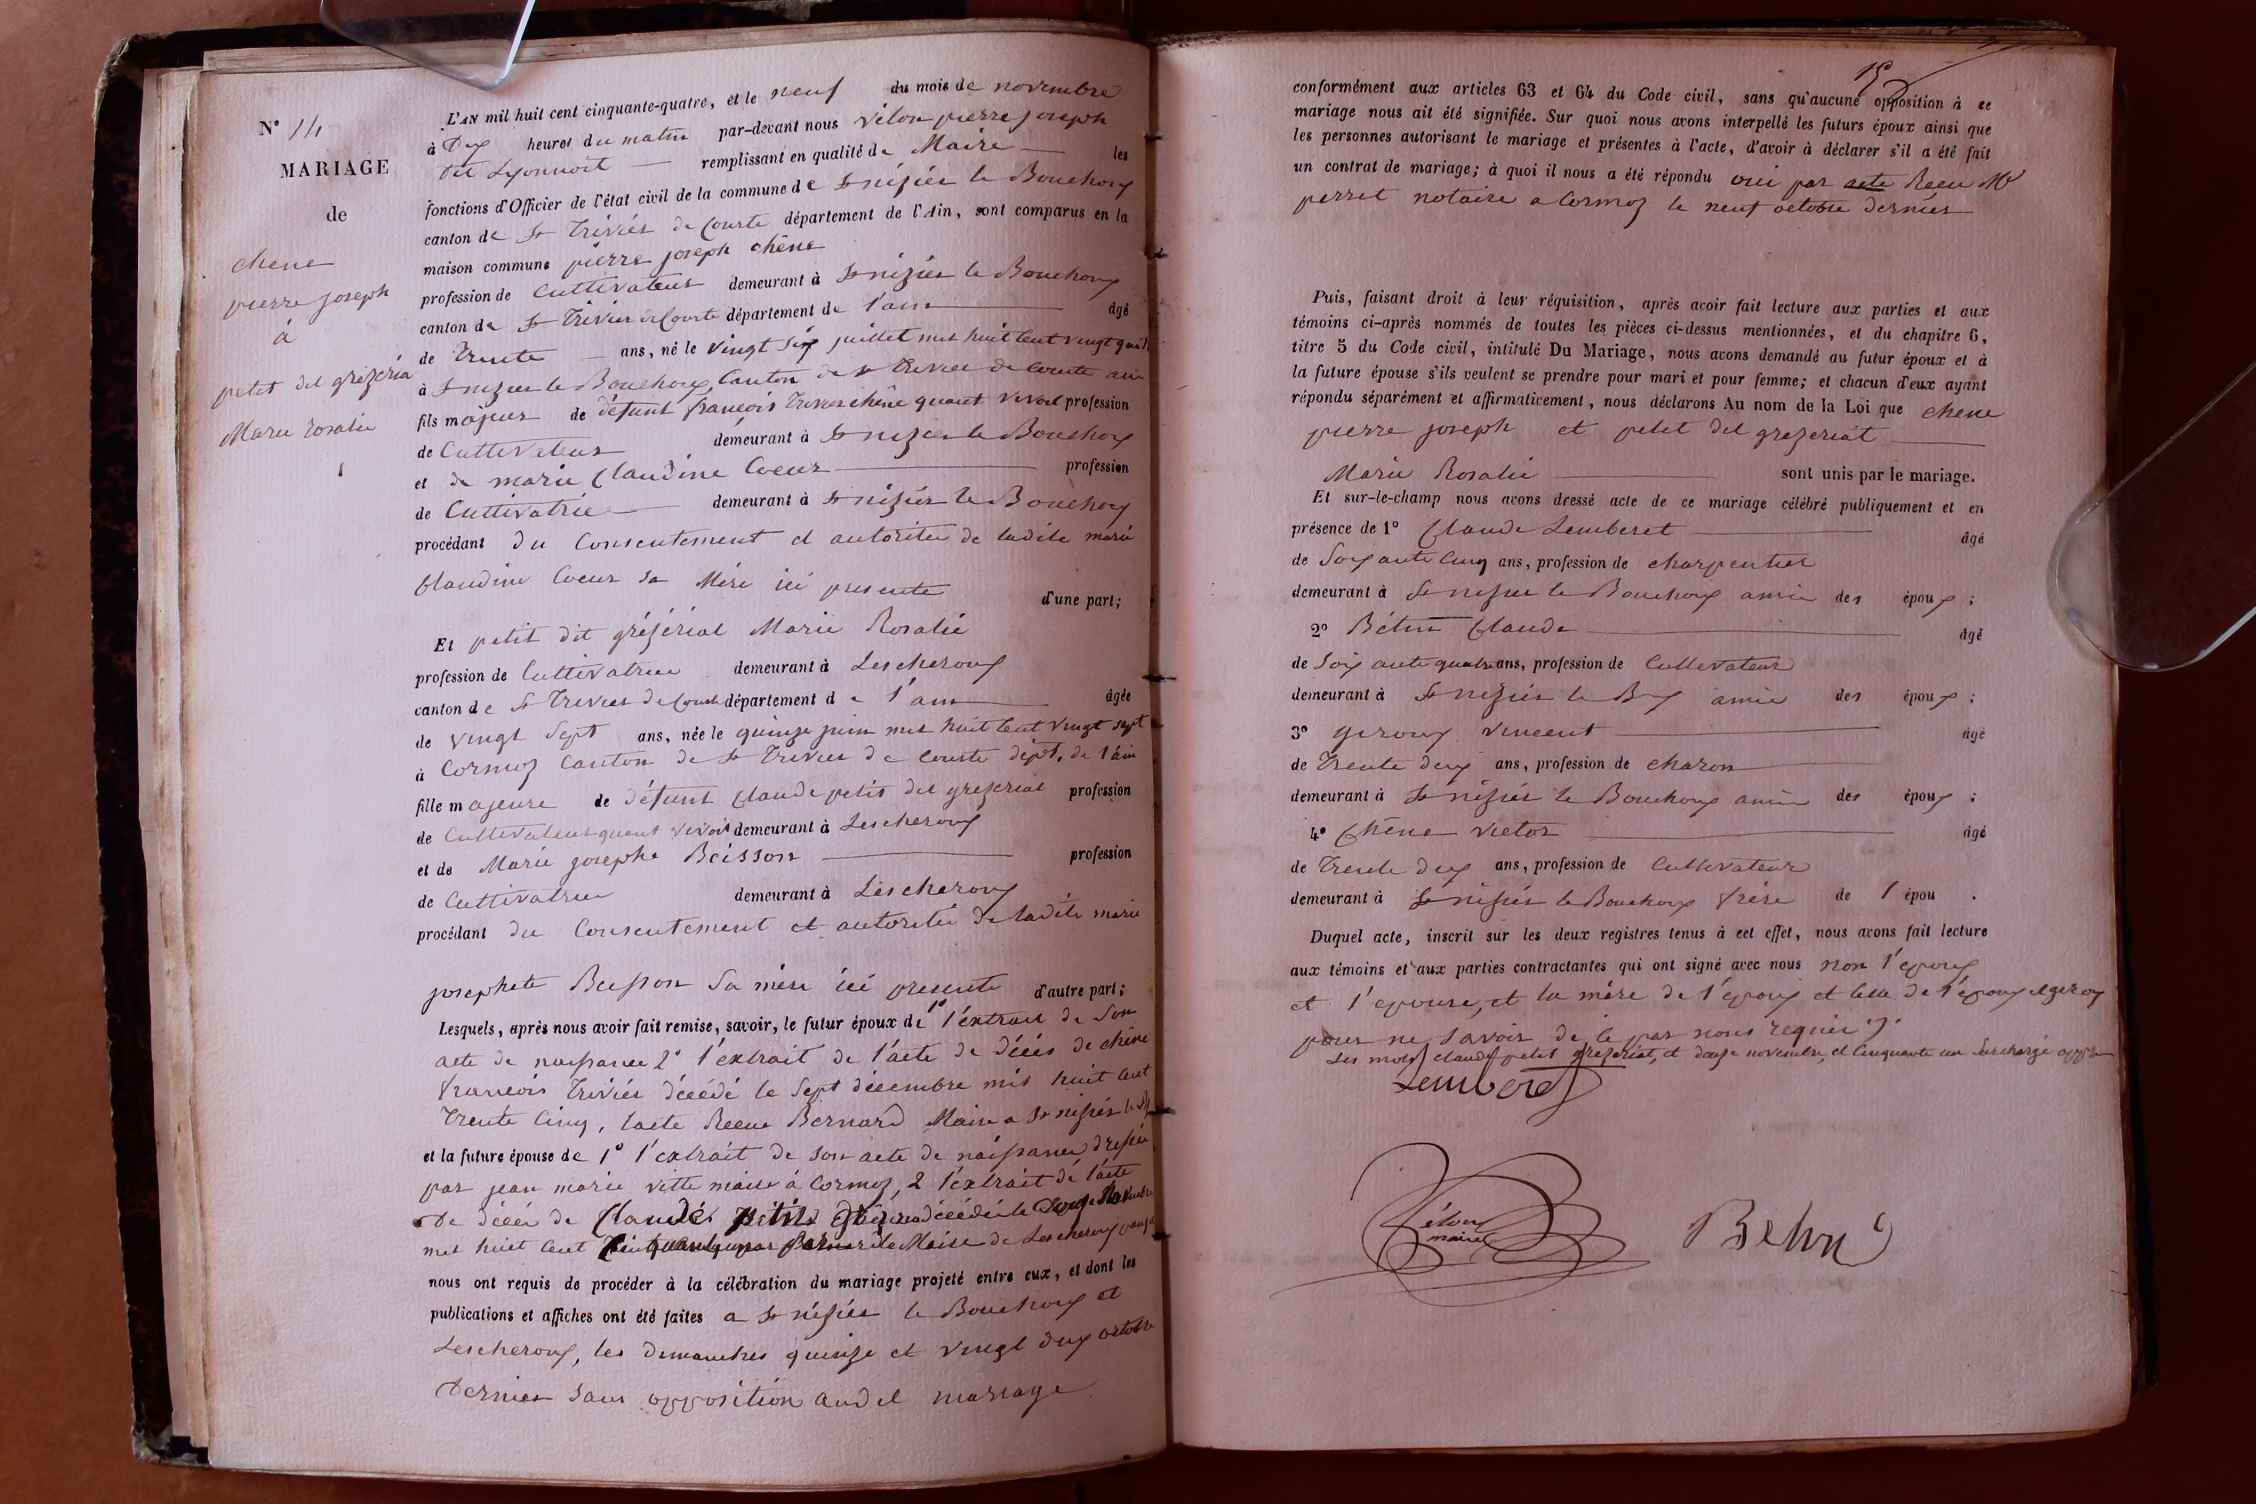 N° 14
MARIAGE
de
chene
pierre joseph
à
petit dit grézéria
Marie rosalie
L'AN mil huit cent cinquante-quatre, et le neuf du mois de novembre
à dix heures du matin par-devant nous vélon pierre joseph
dit Lyonnois remplissant en qualité de Maire les
fonctions d'Officier de l'état civil de la commune de St nizier le Bouchoux
canton de St Triviér de Courte département de l'Ain, sont comparus en la
maison commune pierre joseph chêne
profession de Cultivateur demeurant à St nizier le Bouchoux
canton de St Trivier de Courte département de l'ain âgé
de Trente ans, né le vingt six juillet mil huit cent vingt quatre
à St nizier le Bouchoux, Canton de St Trivier de Courte ain
fils majeur de défunt françois Trivier chêne quant vivoit profession
de Cultivateur demeurant à St nizier le Bouchoux
et de marie Claudine Coeur profession
de Cultivatrice demeurant à St nizier le Bouchoux
procédant du Consentement et autoritée de ladite marie
Claudine Coeur sa Mére ici presente d'une part;
Et petit dit grézériat Marie Rosalie
profession de Cultivatrice demeurant à Lescheroux
canton de St Trivier de Courte département de l'ain âgée
de vingt Sept ans, née le quinze juin mil huit cent vingt sept
à Cormoz Canton de St Trivier de Courte dépt. de l'ain
fille majeure de défunt Claude petit dit grezeriat profession
de Cultivateur quant vivoit demeurant à Lescheroux
et de Marie josephe Beisson profession
de Cultivatrice demeurant à Lescheroux
procédant du Consentement et autoritée de ladite marie
josephete Beisson Sa mére ici presente d'autre part;
Lesquels, après nous avoir fait remise, savoir, le futur époux de 1° l'extrait de Son
acte de naissance 2° l'extrait de l'acte de décés de chêne
françois Triviér décédé le Sept décembre mil huit cent
Trente Cinq, l'acte Reçue Bernard Maire a St nizier le Bx
et la future épouse de 1° l'extrait de son acte de naissance dressée
par jean marie vitte maire à Cormoz, 2 l'extrait de l'acte
de décés de Claude petit grézériat décédé le Douze Novembre
mil huit cent Cinquante un par Maire de Lescheroux
nous ont requis de procéder à la célébration du mariage projeté entre eux, et dont les
publications et affiches ont été faites a St nizier le Bouchoux et
Lescheroux, les dimanches quinze et vingt deux octobre
Dernier sans opposition audit mariage
15
conformément aux articles 63 et 64 du Code civil, sans qu'aucune opposition à ce
mariage nous ait été signifiée. Sur quoi nous avons interpellé les futurs époux ainsi que
les personnes autorisant le mariage et présentes à l'acte, d'avoir à déclarer s'il a été fait
un contrat de mariage; à quoi il nous a été répondu oui par acte Reçu Me
perret notaire a Cormoz le neuf octobre dernier
Puis, faisant droit à leur réquisition, après avoir fait lecture aux parties et aux
témoins ci-après nommés de toutes les pièces ci-dessus mentionnées, et du chapitre 6,
titre 5 du Code civil, intitulé Du Mariage, nous avons demandé au futur époux et à
la future épouse s'ils veulent se prendre pour mari et pour femme; et chacun d'eux ayant
répondu séparément et affirmativement, nous déclarons Au nom de la Loi que chene
pierre joseph et petit dit grezeriat
Marie Rosalie sont unis par le mariage.
Et sur-le-champ nous avons dressé acte de ce mariage célébré publiquement et en
présence de 1° Claude Lemberet âgé
de Soixante Cinq ans, profession de charpentier
demeurant à St nizier le Bouchoux amie des époux ;
2° Bétin Claude âgé
de Soixante quatre ans, profession de Cultivateur
demeurant à St nizier le Bx amie des époux ;
3° giroux vincent âgé
de Trente deux ans, profession de charon
demeurant à St nizier le Bouchoux amie des époux ;
4° Chêne victor âgé
de Trente deux ans, profession de Cultivateur
demeurant à St nizier le Bouchoux frére de l'épou .
Duquel acte, inscrit sur les deux registres tenus à cet effet, nous avons fait lecture
aux témoins et aux parties contractantes qui ont signé avec nous non l'epoux
et l'epouse, et la mére de l'époux et celle de l'epoux
pour ne savoir de ce par nous requis
Les mots claude petit grezeriat, et douze novembre, et Cinquante un Surchargé
Lemberet
vélon
maire
Betin C